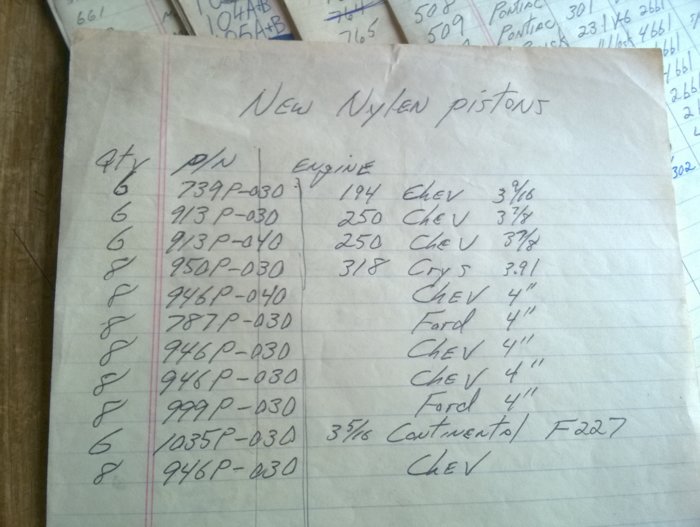 661
104A+B
105A+B
764
765
508
509
Pontiac 301
Pontiac 231 V6 2661
4661
4661
2661
2
302
New Nylen pistons
Qty P/N Engine
6 739P-030 194 Chev 3 9/16
6 913P-030 250 Chev 3 7/8
6 913P-040 250 Chev 3 7/8
8 950P-030 318 Crys 3.91
8 946P-040 Chev 4"
8 787P-030 Ford 4"
8 946P-030 Chev 4"
8 946P-030 Chev 4"
8 999P-030 Ford 4"
6 1035P-030 3 5/16 Continental F227
8 946P-030 Chev